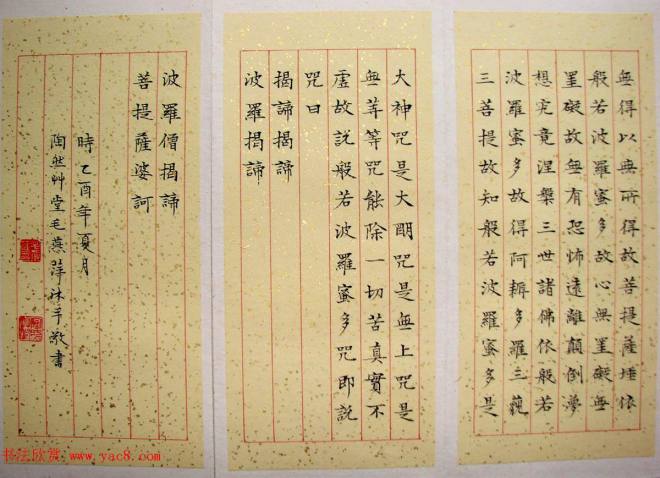 無得以無所得故菩提薩埵依
般若波羅蜜多故心無罣礙無
罣礙故無有恐怖遠離顛倒夢
想究竟涅槃三世諸佛依般若
波羅蜜多故得阿耨多羅三藐
三菩提故知般若波羅蜜多是
大神咒是大明咒是無上咒是
無等等咒能除一切苦真實不
虛故說般若波羅蜜多咒即說
咒曰
揭諦揭諦
波羅揭諦
波羅僧揭諦
菩提薩婆訶
時乙酉年夏月
陶然艸堂毛燕萍沐手敬書
书法欣赏 www.yac8.com